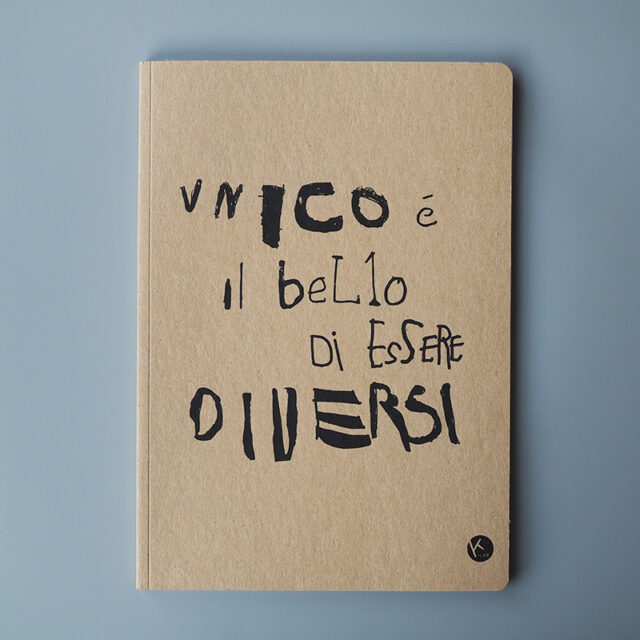 VNICO é
il beLlo
Di ESSERE
DIVERSI
K
LAB